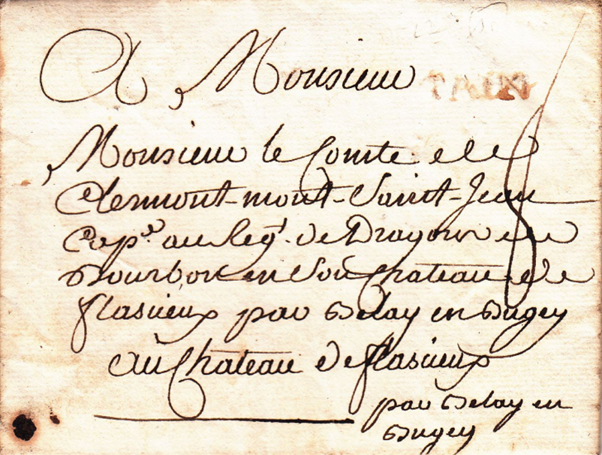 A Monsieur
TAIN
Monsieur le Comte de
Clermont-mont-Saint-Jean
Cap.e au Reg.t de Dragons de
Bourbon en son Chateau de
flasieux par Belay en Bugey
au Chateau de flasieux
par Belay en
Bugey
8